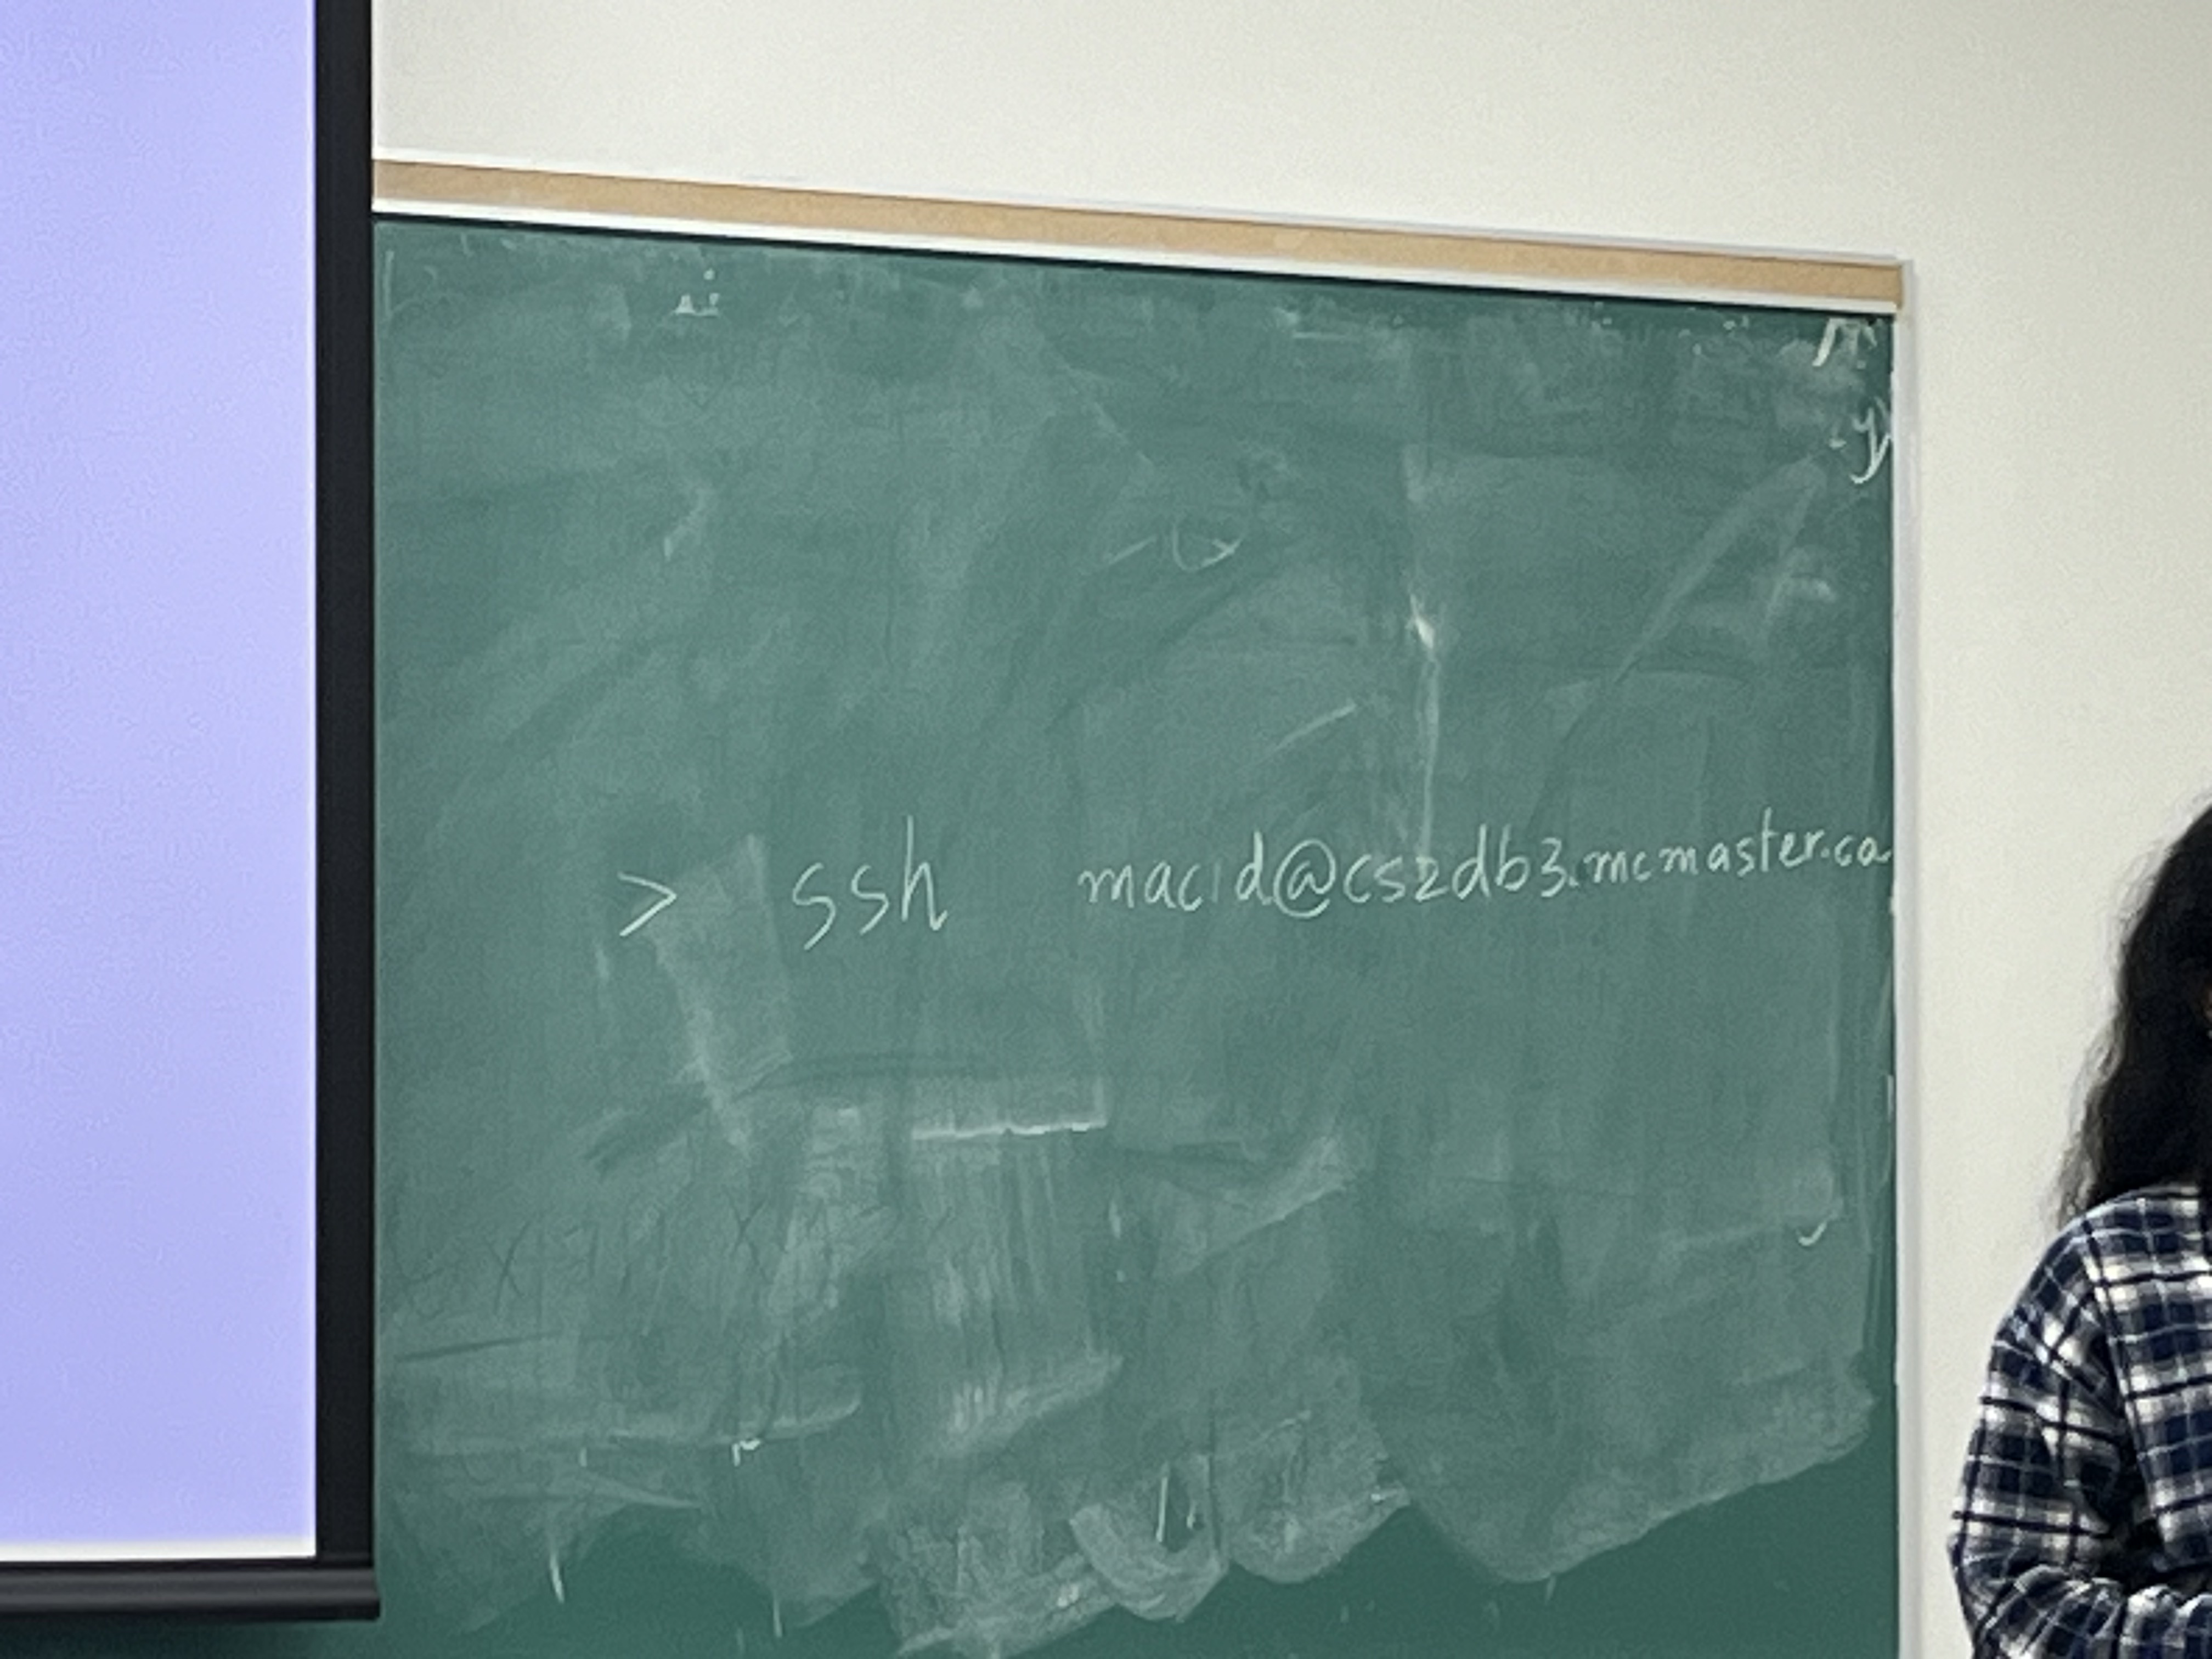 > ssh macid@cs2db3.mcmaster.ca